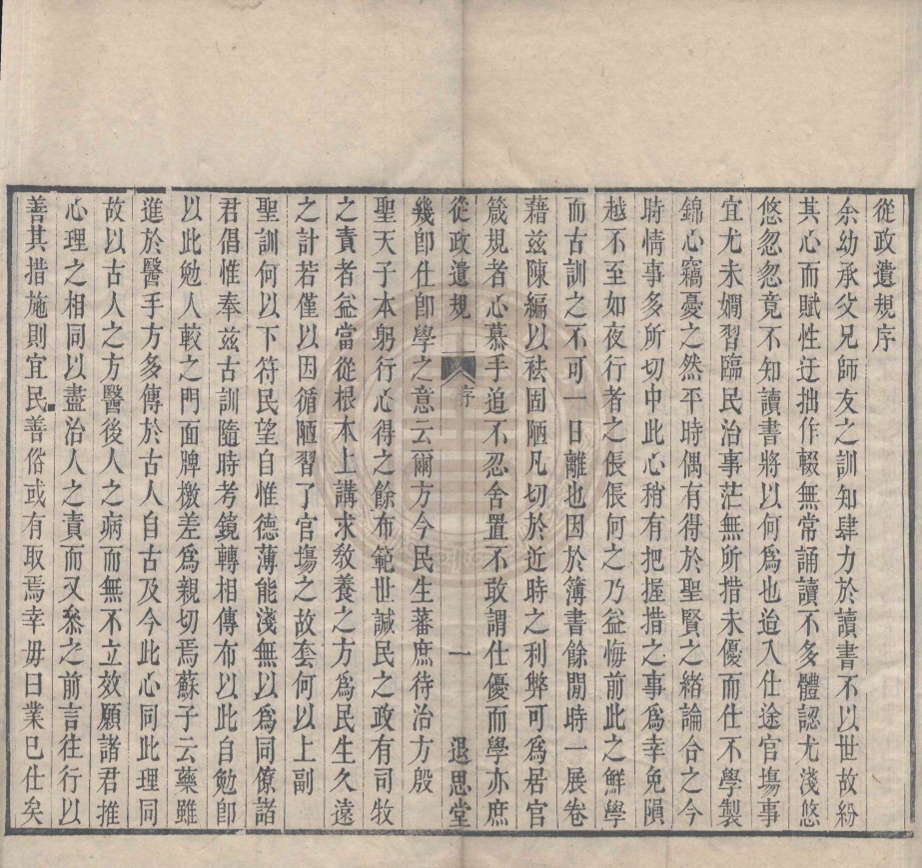 從政遺規序
余幼承父兄師友之訓知肆力於讀書不以世故紛
其心而賦性迂拙作輟無常誦讀不多體認尤淺悠
悠忽忽竟不知讀書將以何爲也迨入仕途官塲事
宜尤未嫺習臨民治事茫無所措未優而仕不學製
錦心竊憂之然平時偶有得於聖賢之緒論合之今
時情事多所切中此心稍有把握措之事爲幸免隕
越不至如夜行者之倀倀何之乃益悔前此之鮮學
而古訓之不可一日離也因於簿書餘閒時一展卷
藉兹陳編以祛固陋凡切於近時之利弊可爲居官
箴規者心慕手追不忍舍置不敢謂仕優而學亦庶
從政遺規 序 一 退思堂
幾卽仕卽學之意云爾方今民生蕃庶待治方殷
聖天子本躬行心得之餘布範世諴民之政有司牧
之責者益當從根本上講求敎養之方爲民生久遠
之計若僅以因循陋習了官塲之故套何以上副
聖訓何以下符民望自惟德薄能淺無以爲同僚諸
君倡惟奉兹古訓隨時考鏡轉相傳布以此自勉卽
以此勉人較之門面牌檄差爲親切焉蘇子云藥雖
進於醫手方多傳於古人自古及今此心同此理同
故以古人之方醫後人之病而無不立效願諸君推
心理之相同以盡治人之責而又叅之前言往行以
善其措施則宜民善俗或有取焉幸毋曰業已仕矣